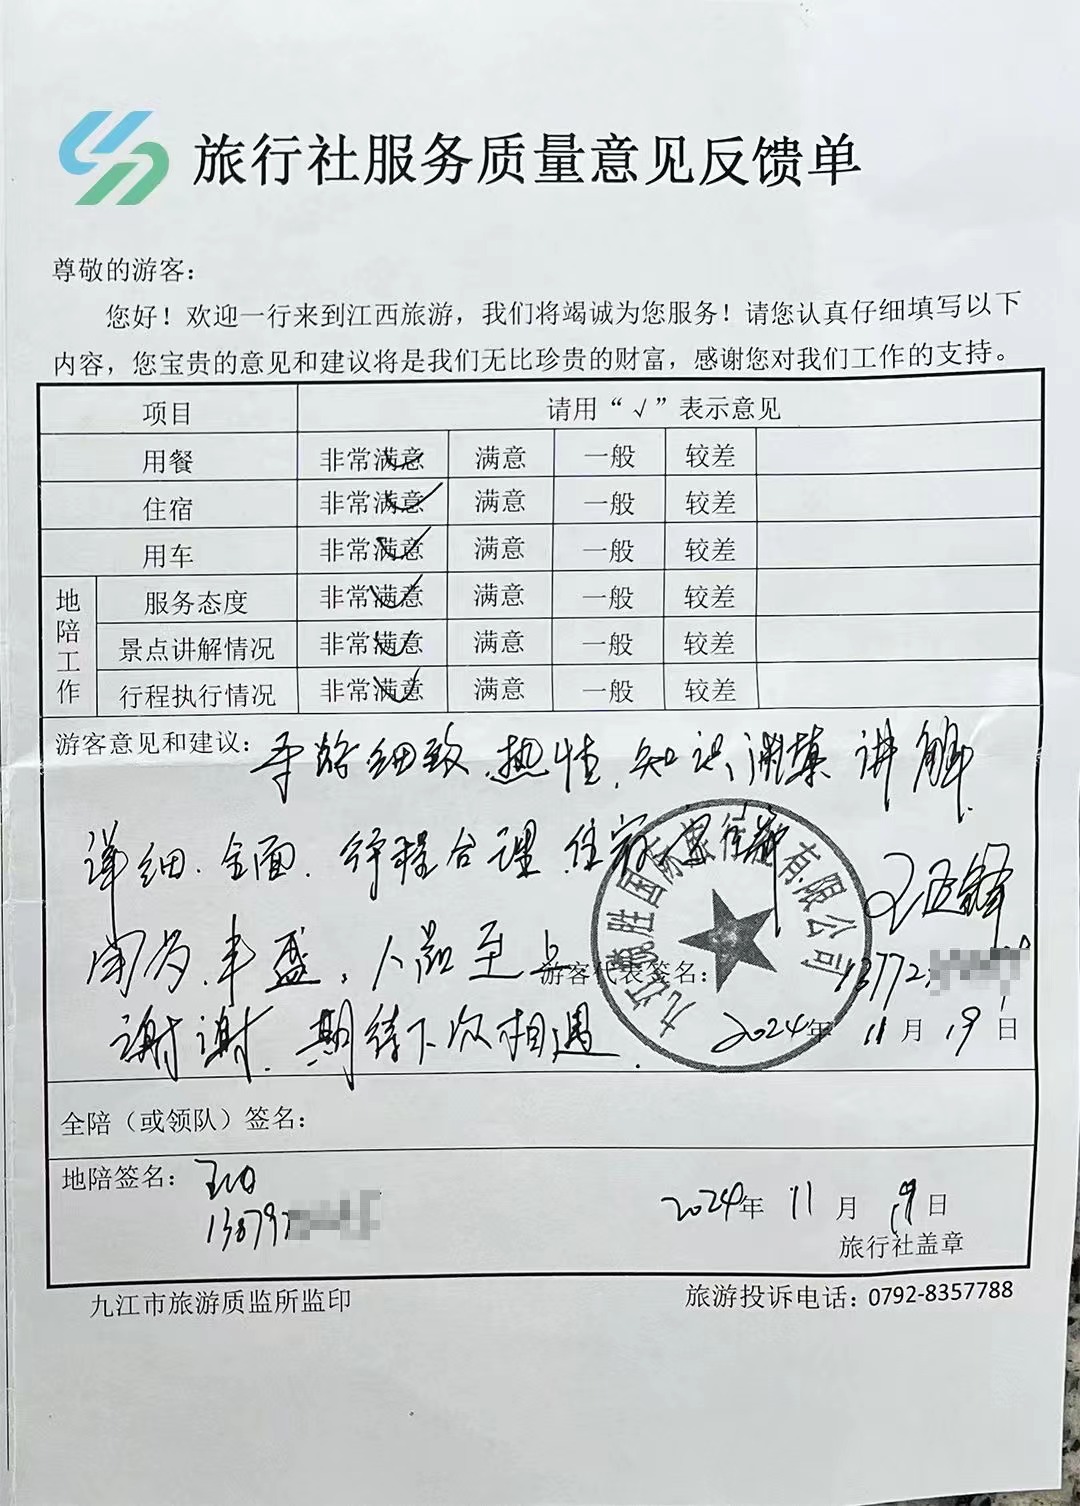 旅行社服务质量意见反馈单
尊敬的游客：
您好！欢迎一行来到江西旅游，我们将竭诚为您服务！请您认真仔细填写以下
内容，您宝贵的意见和建议将是我们无比珍贵的财富，感谢您对我们工作的支持。
项目 请用“√”表示意见
用餐 非常满意 满意 一般 较差
住宿 非常满意 满意 一般 较差
用车 非常满意 满意 一般 较差
地陪工作
服务态度 非常满意 满意 一般 较差
景点讲解情况 非常满意 满意 一般 较差
行程执行情况 非常满意 满意 一般 较差
游客意见和建议：导游细致、热情、知识渊集 讲解
详细、全面、行程合理、住宿
丰盛、人品至上
游客代表签名：
13772
谢谢、期待下次相遇.
2024年11月19日
国际旅行社有限公司
全陪（或领队）签名：
地陪签名：
13879
2024年11月19日
旅行社盖章
九江市旅游质监所监印 旅游投诉电话：0792-8357788